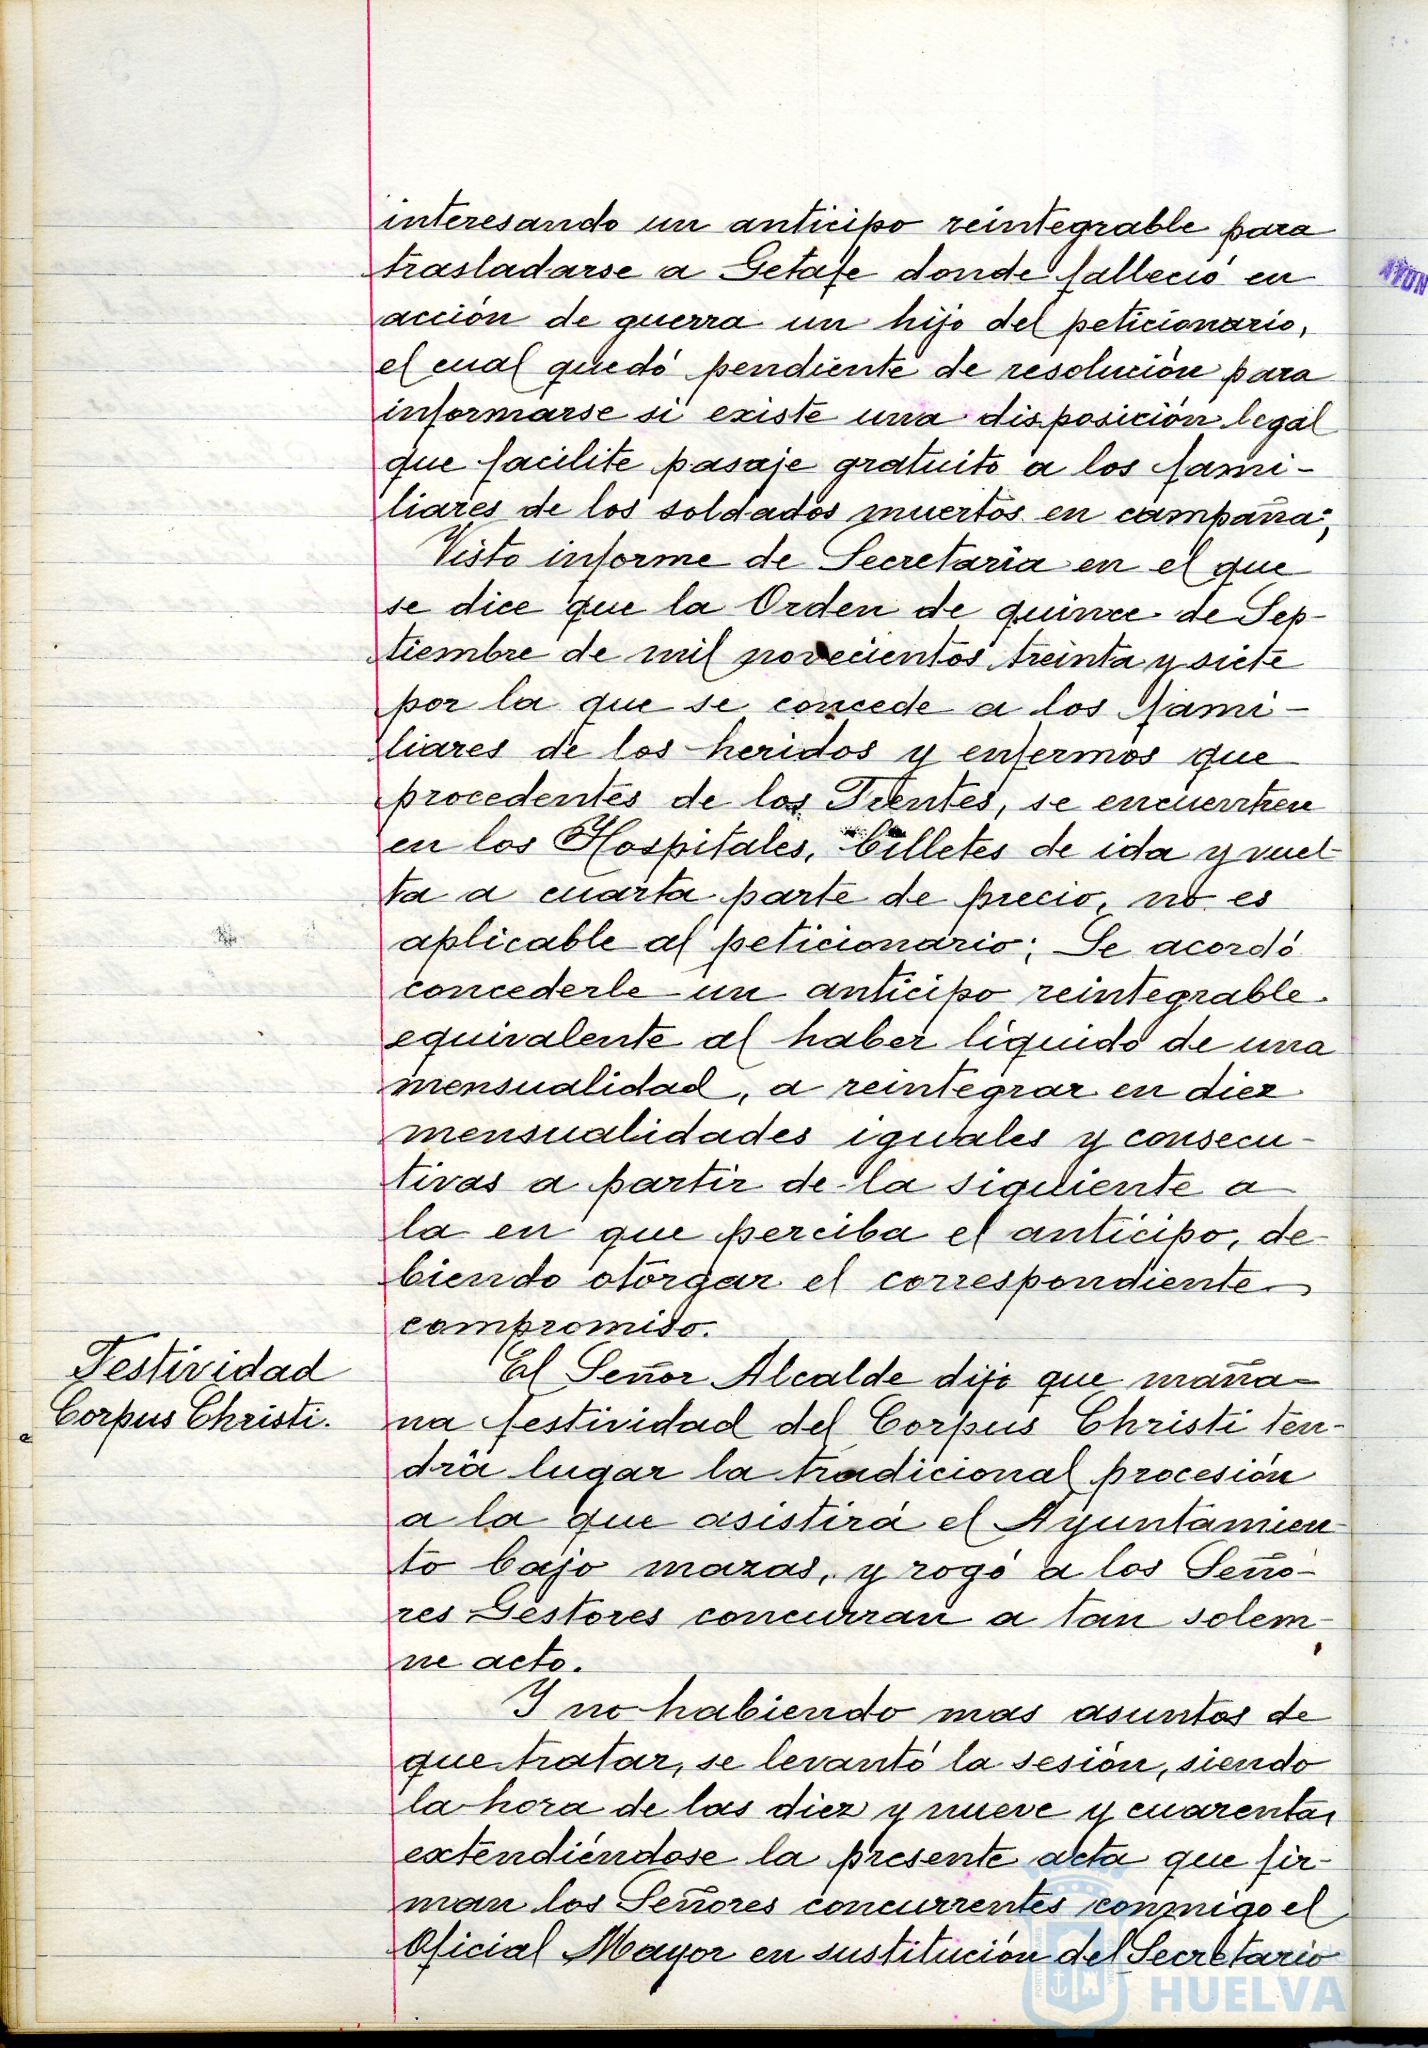 interesando un anticipo reintegrable para
trasladarse a Getafe donde falleció en
acción de guerra un hijo del peticionario,
el cual quedó pendiente de resolución para
informarse si existe una disposición legal
que facilite pasaje gratuito a los fami-
liares de los soldados muertos en campaña;
Visto informe de Secretaría en el que
se dice que la Orden de quince de Sep-
tiembre de mil novecientos treinta y siete
por la que se concede a los fami-
liares de los heridos y enfermos que
procedentes de los Frentes, se encuentren
en los Hospitales, billetes de ida y vuel-
ta a cuarta parte de precio, no es
aplicable al peticionario; Se acordó
concederle un anticipo reintegrable
equivalente al haber líquido de una
mensualidad, a reintegrar en diez
mensualidades iguales y consecu-
tivas a partir de la siguiente a
la en que perciba el anticipo, de-
biendo otorgar el correspondiente
compromiso.
Festividad
Corpus Christi.
El Señor Alcalde dijo que maña-
na festividad del Corpus Christi ten-
drá lugar la tradicional procesión
a la que asistirá el Ayuntamien-
to bajo mazas, y rogó a los Seño-
res Gestores concurran a tan solem-
ne acto.
Y no habiendo mas asuntos de
que tratar, se levantó la sesión, siendo
la hora de las diez y nueve y cuarenta,
extendiéndose la presente acta que fir-
man los Señores concurrentes conmigo el
Oficial Mayor en sustitución del Secretario
AYUN
HUELVA